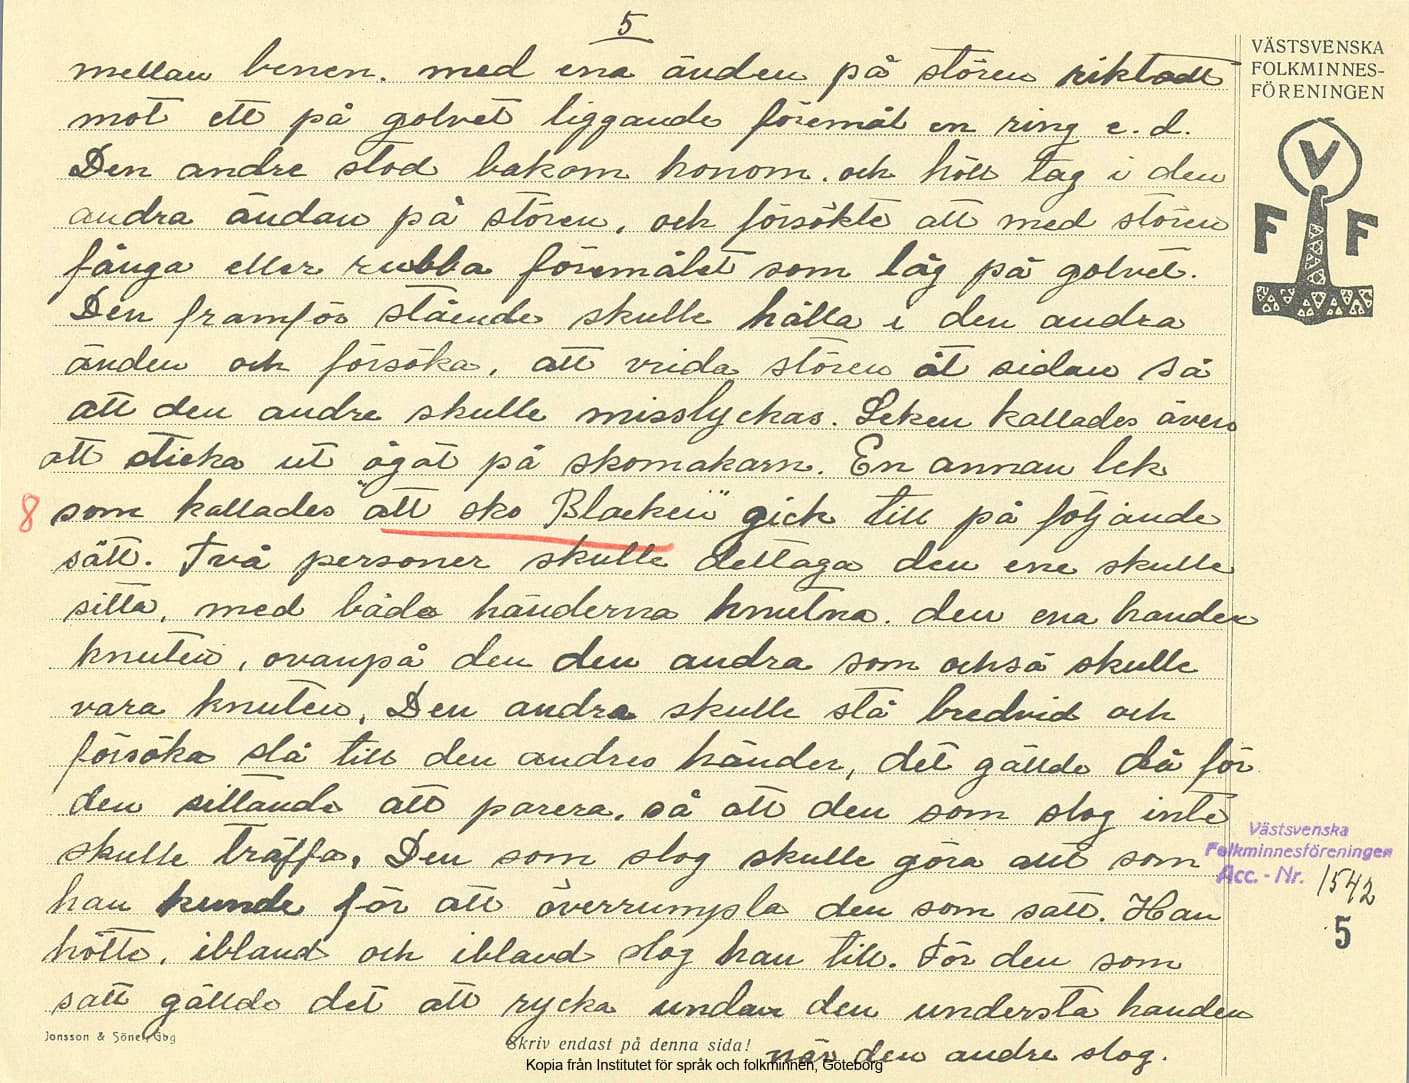 5
mellan benen. med ena änden på stören riktadt
mot ett på golvet liggande föremål en ring e. d.
Den andre stod bakom honom. och höll tag i den
andra ändan på stören, och försökte att med stören
fånga eller rubba föremålet som låg på golvet.
Den framför stående skulle hålla i den andra
änden och försöka, att vrida stören åt sidan så
att den andre skulle misslyckas. Leken kallades även
att sticka ut ögat på skomakarn. En annan lek
8 som kallades "att sko Blacken" gick till på följande
sätt. Två personer skulle deltaga den ene skulle
sitta, med båda händerna knutna. den ena handen
knuten, ovanpå den den andra som också skulle
vara knuten. Den andra skulle stå bredvid och
försöka slå till den andres händer, det gällde då för
den sittande att parera. så att den som slog inte
skulle träffa. Den som slog skulle göra allt som
han kunde för att överrumpla den som satt. Han
hötte, ibland och ibland slog han till. För den som
satt gällde det att rycka undan den understa handen
när den andre slog.
VÄSTSVENSKA
FOLKMINNES-
FÖRENINGEN
V
F F
Västsvenska
Folkminnesföreningen
Acc. - Nr. 1542
5
Jonsson & Söner, Gbg
Skriv endast på denna sida!
Kopia från Institutet för språk och folkminnen, Göteborg